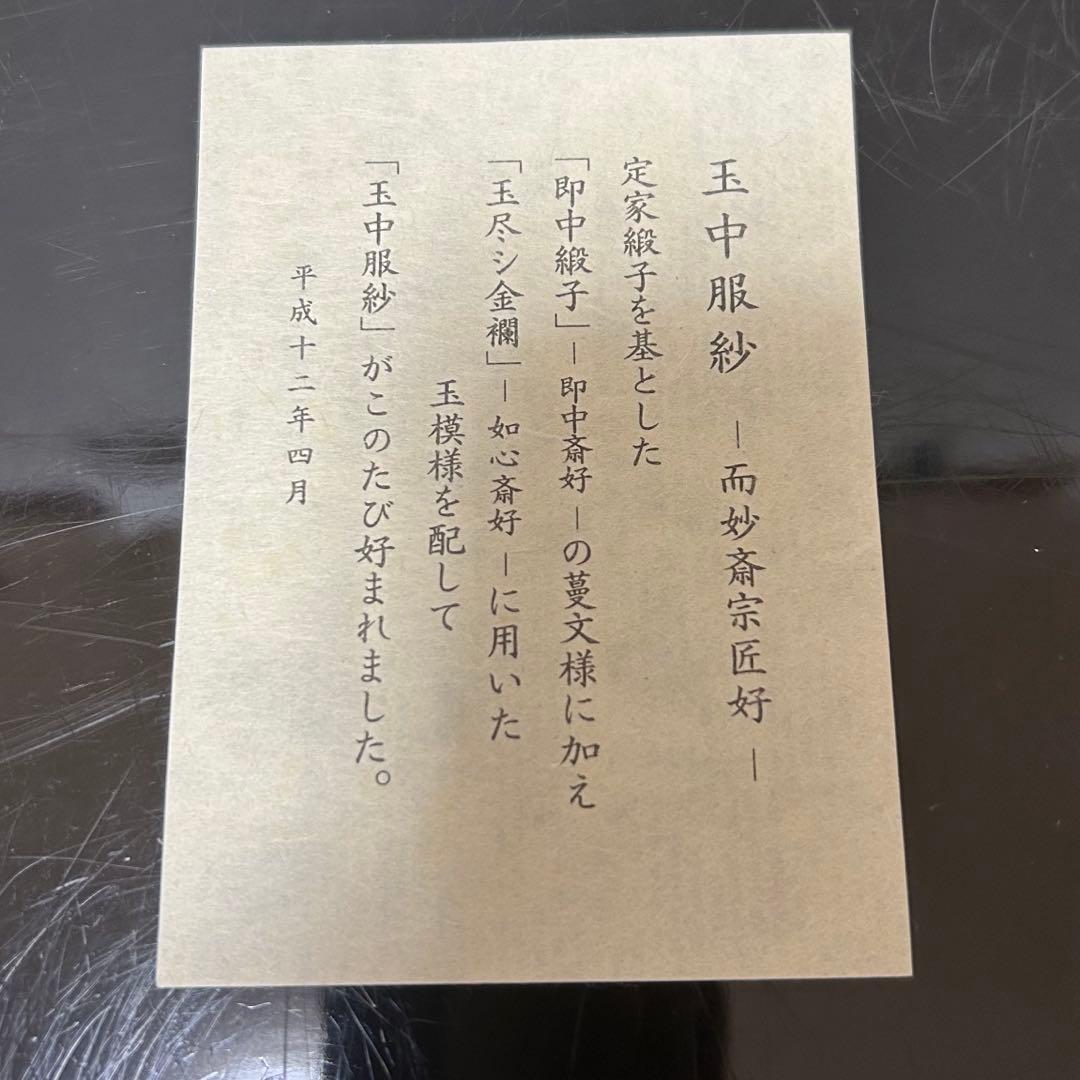 玉中服紗 ―而妙斎宗匠好―
定家緞子を基とした
「即中緞子」―即中斎好―の蔓文様に加え
「玉尽シ金襴」―如心斎好―に用いた
玉模様を配して
「玉中服紗」がこのたび好まれました。
平成十二年四月